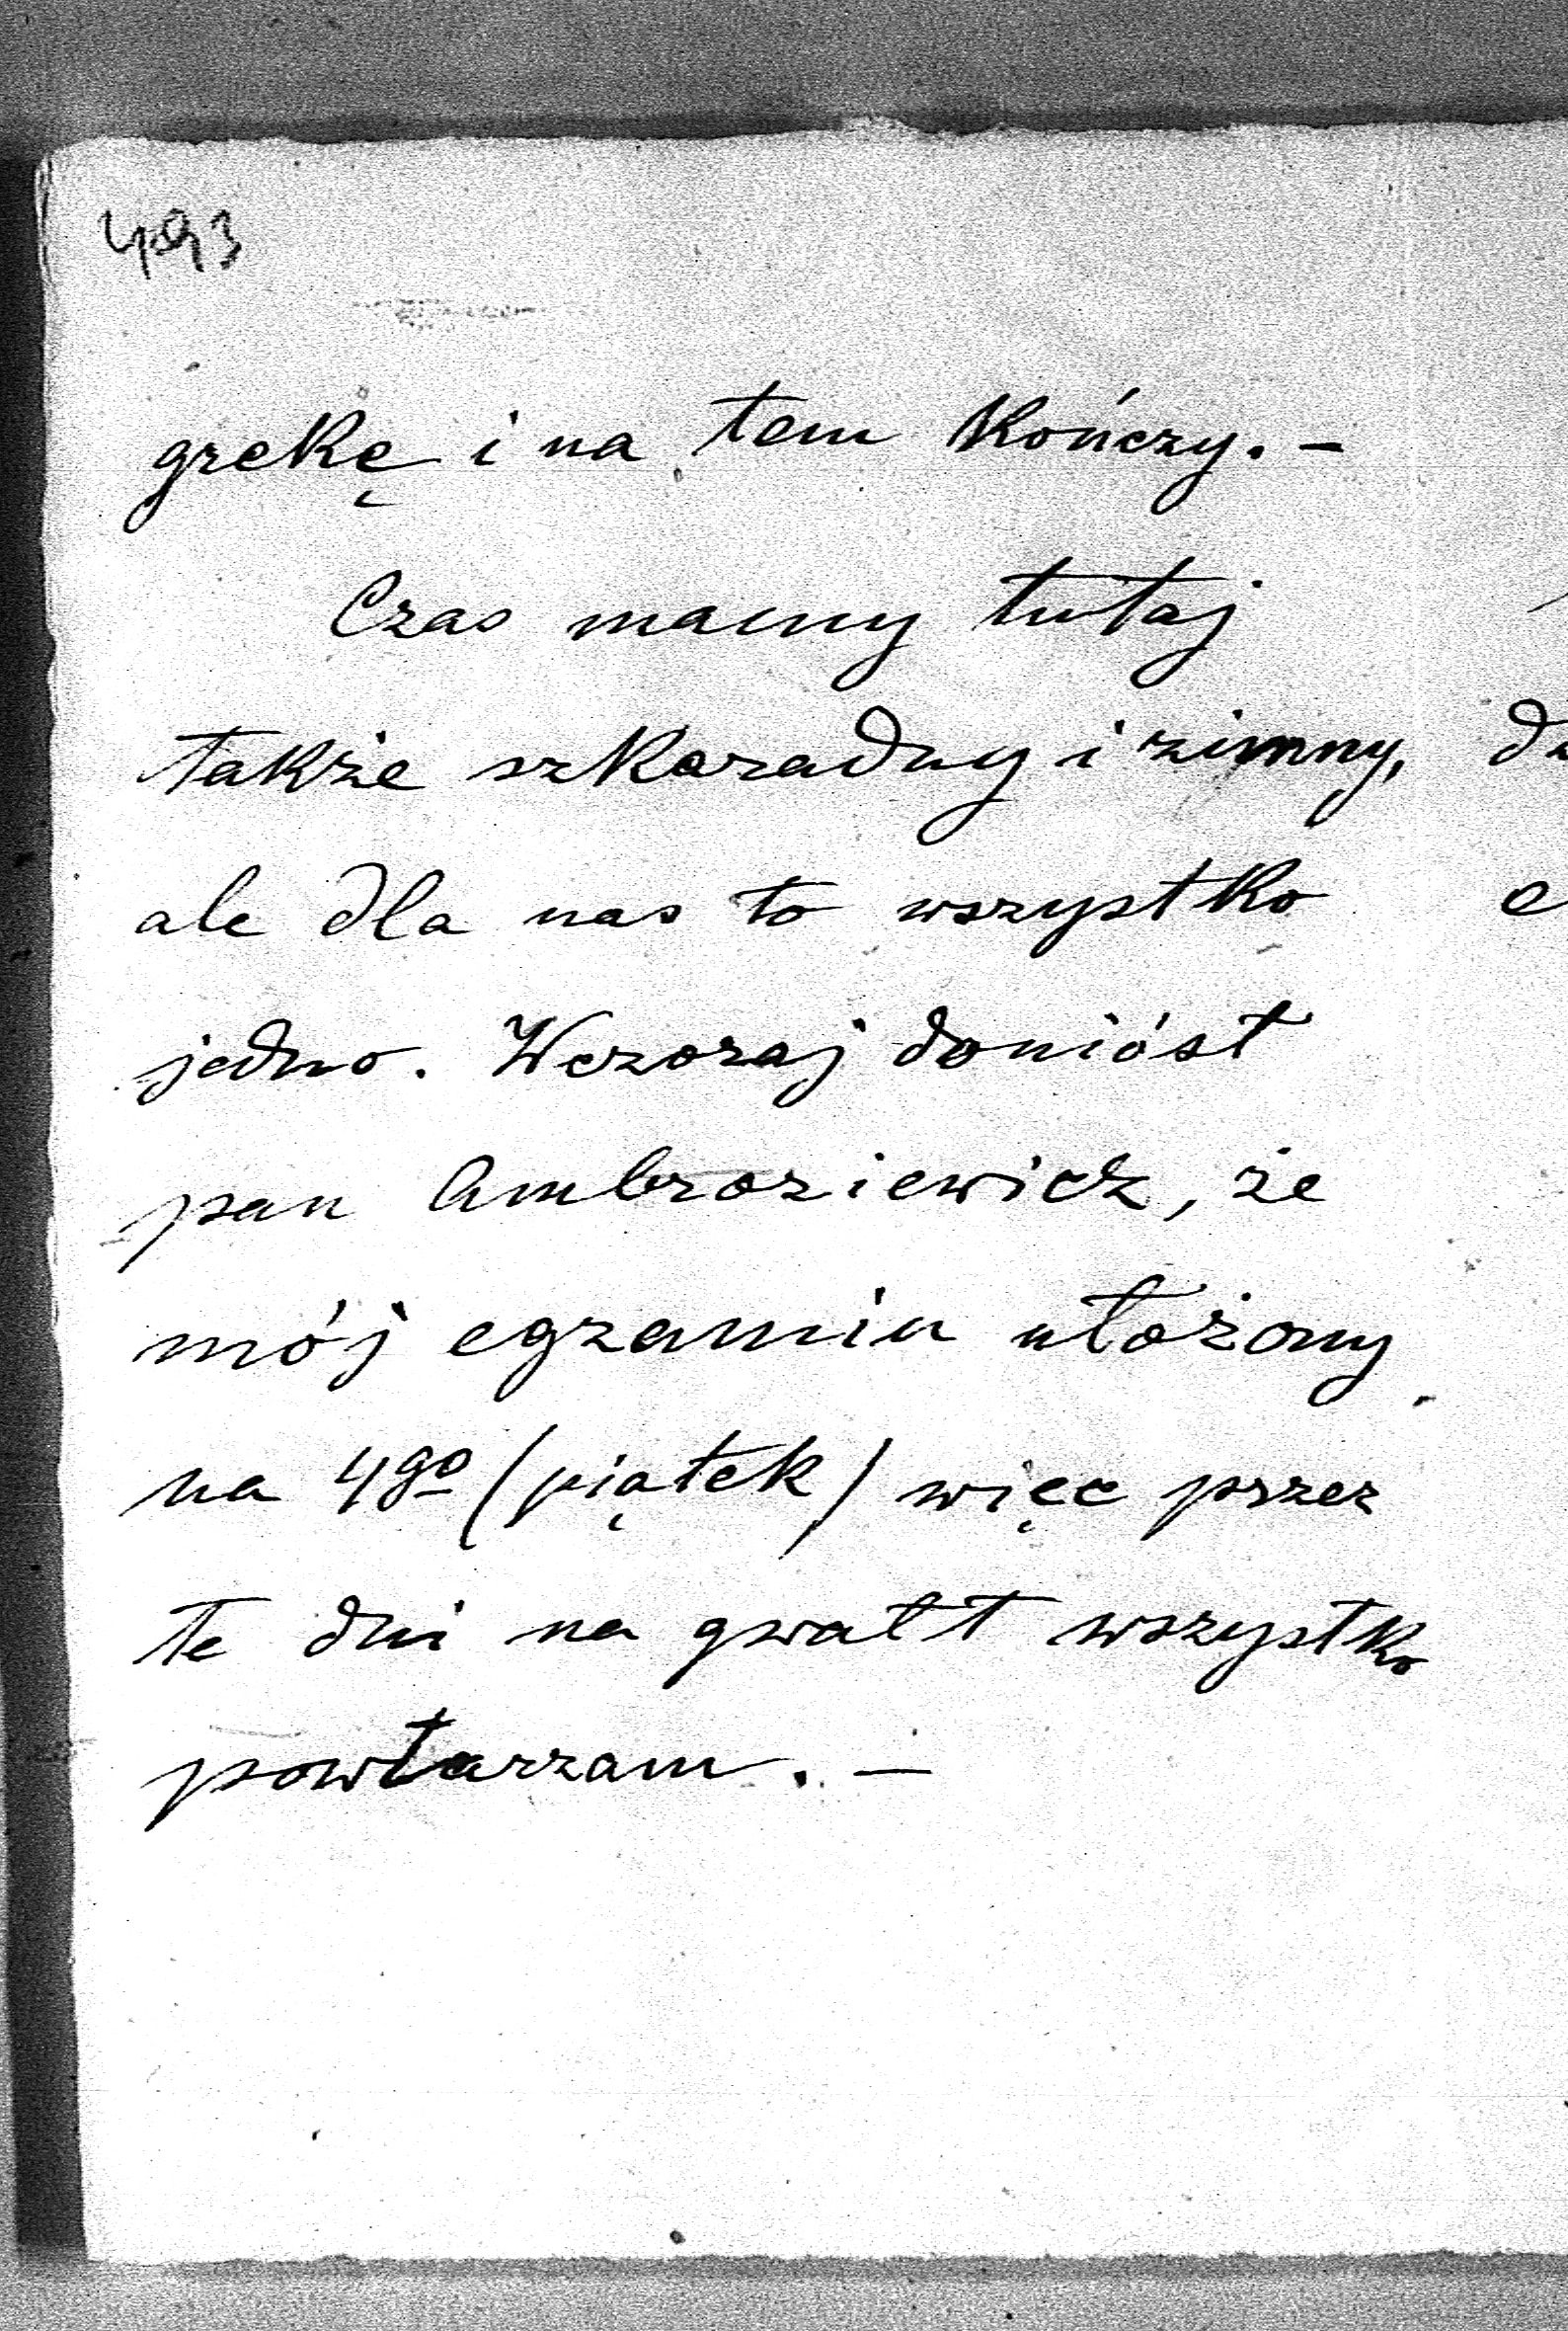 493
grekę i na tem kończy. —
Czas mamy tutaj
także szkaradny i zimny,
ale dla nas to wszystko
jedno. Wczoraj doniósł
pan Ambroziewicz, że
mój egzamin ułożony
na 4go (piątek) więc przez
te dni na gwałt wszystko
powtarzam. —